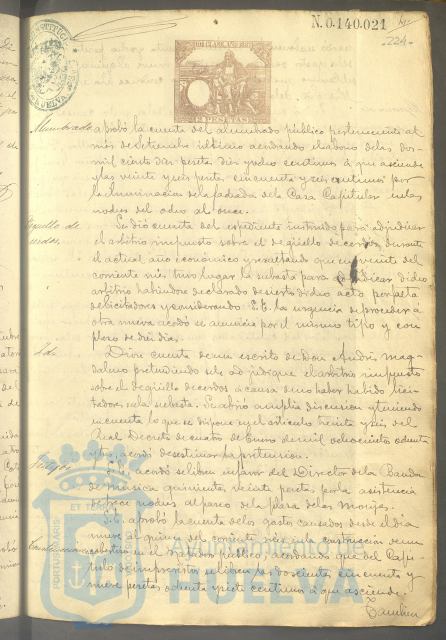 N. 0.140.021
224
Alumbrado aprobó la cuenta del alumbrado público perteneciente al
mes de Setiembre último acordando el abono de las dos
mil ciento diez pesetas diez y ocho centimos á que asciende
y las veinte y seis pesetas cincuenta y seis centimos por
la iluminacion de la fachada de la Casa Capitular en las
noches del ocho al once.
Degüello de cerdos. Se dió cuenta del expediente instruido para adjudicar
el arbitrio impuesto sobre el degüello de cerdos, durante
el actual año económico y resultando que en veinte del
corriente mes tuvo lugar la subasta para adjudicar dicho
arbitrio habiéndose declarado desierto dicho acto por falta
de licitadores y considerando S.E. la urgencia de proceder á
otra nueva acordó se anuncie por el mismo tipo y con
plazo de diez dias.
Id. Dióse cuenta de un escrito de Don Andrés Mag-
daleno pretendiendo se le adjudique el arbitrio impuesto
sobre el degüello de cerdos á causa de no haber habido lici-
tadores en la subasta. Se abrió amplia discusion y teniendo
en cuenta lo que se dispone en el articulo treinta y seis del
Real Decreto de cuatro de Enero de mil ochocientos ochenta
y tres, acordó desestimar la pretension.
Pagos S.E. acordó se libren en favor del Director de la Banda
de musica quinientas veinte pesetas por la asistencia
noches al paseo de la plaza de las Monjas.
S.E. aprobó la cuenta de los gastos causados desde el dia
nueve al quince del corriente mes en la construccion de un
en el acordando que del Capi-
tulo de imprevistos se libren las doscientas cincuenta y
nueve pesetas ochenta y siete centimos á que asciende.
Tambien
Ayuntamiento de
HUELVA